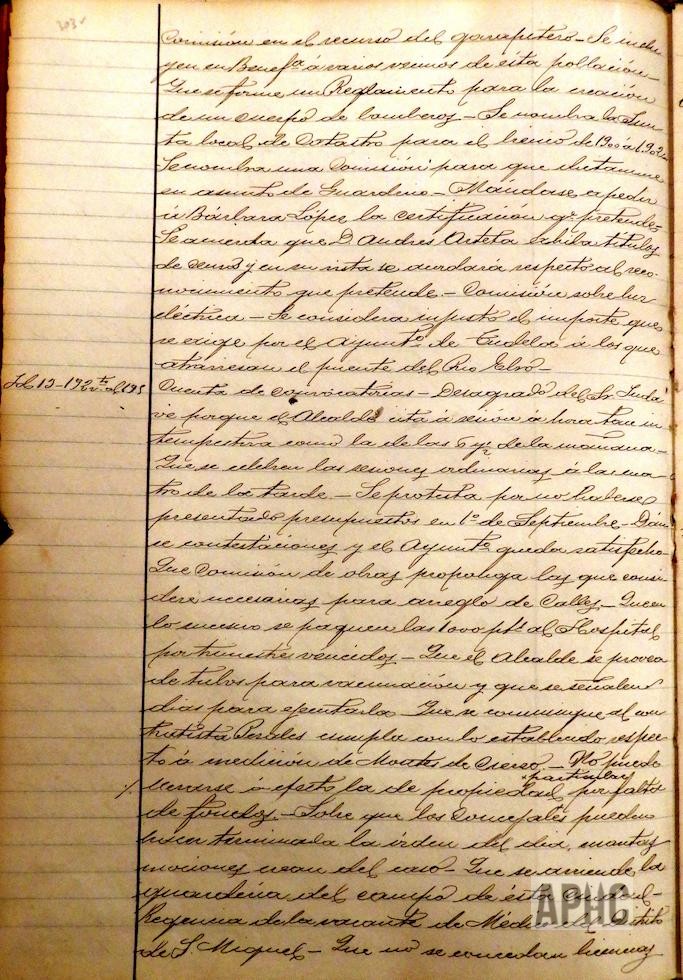 303
Comisión en el recurso del garrapitero - Se inclu
yen en Benefª á varios vecinos de ésta población -
Que se forme un Reglamento para la creación
de un cuerpo de bomberos - Se nombra la Jun
ta local de Catastro para el bienio de 1900 á 1902 -
Se nombra una Comisión para que dictamine
en asunto de Guardino - Mándase expedir
á Bárbara López la certificación qe pretende -
Se acuerda que D. Andres Arteta exhiba títulos
de censos y en su vista se acordará respecto al reco-
nocimiento que pretende - Comisión sobre luz
eléctrica - Se considera injusto el importe que
se exige por el Ayuntº de Tudela á los que
atraviesan el puente del Rio Ebro -
Fol 15-192 al 195
Cuenta de convocatorias - Desagrado del Sr.
ve porque el Alcalde cita á sesión á hora tan in
tempestiva como la de las 6 y ½ de la mañana -
Que se celebren las sesiones ordinarias á las cua
tro de la tarde - Se protesta por no haberse
presentado presupuestos en 1º de Septiembre - Dán
se contestaciones y el Ayuntº queda satisfecho
Que Comisión de obras proponga las que consi
dere necesarias para arreglo de Calles - Que en
lo sucesivo se paguen las 1000 pts al Hospital
por trimestres vencidos - Que el Alcalde se provea
de tubos para vacunación y que se señalen
dias para ejecutarla - Que se comunique al con
tratista Perales cumpla con lo establecido respec
to á medición de Montes de Cierzo - No puede
llevarse á efecto la de propiedad particular por falta
de fondos - Sobre que los Concejales puedan
hacer terminada la órden del dia, cuantas
mociones crean del caso - Que se arriende la
guarderia del campo de ésta Ciudad -
de la vacante de Médico
de S. Miguel - Que no se concedan licencias
APHC